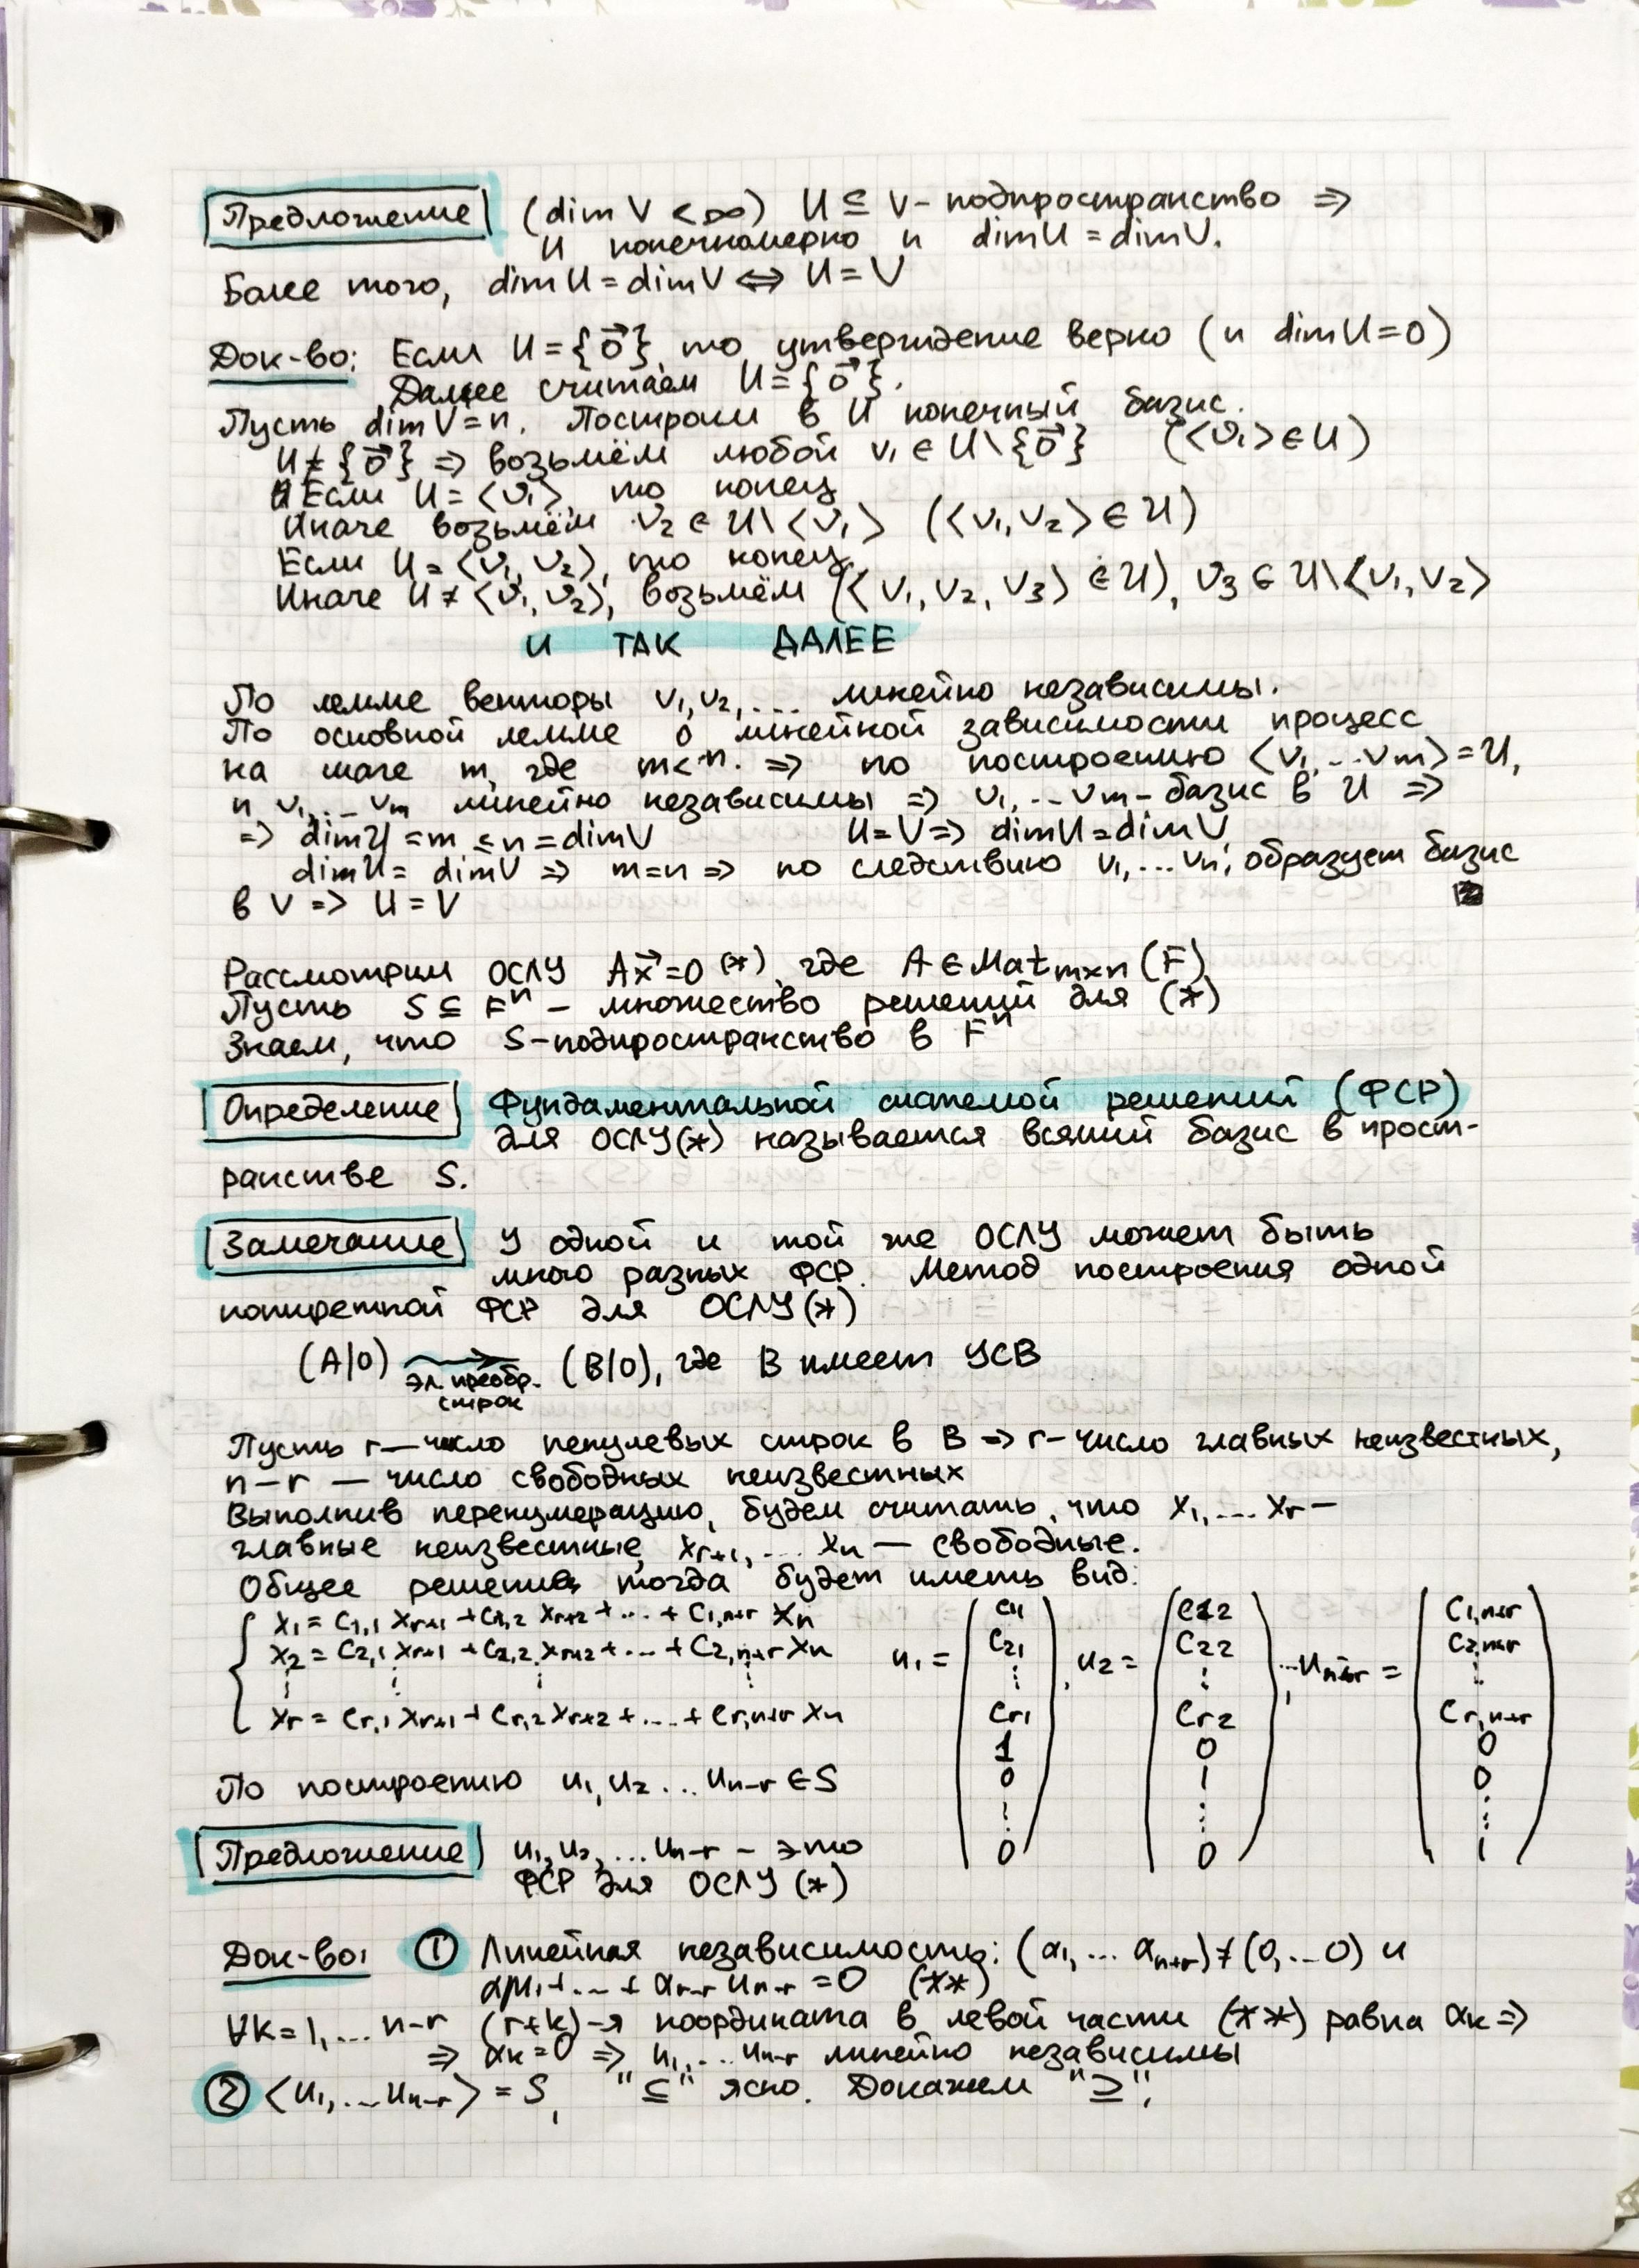 Предложение (dim V < ∞) U ⊆ V - подпространство ⇒
U конечномерно и dim U = dim V.
Более того, dim U = dim V ⇔ U = V
Док-во: Если U = {0⃗}, то утверждение верно (и dim U = 0)
Далее считаем U = {0⃗}.
Пусть dim V = n. Построим в U конечный базис.
U ≠ {0⃗} ⇒ возьмём любой v₁ ∈ U \ {0⃗} (⟨v₁⟩ ∈ U)
Если U = ⟨v₁⟩, то конец
Иначе возьмём v₂ ∈ U \ ⟨v₁⟩ (⟨v₁, v₂⟩ ∈ U)
Если U = ⟨v₁, v₂⟩, то конец.
Иначе U ≠ ⟨v₁, v₂⟩, возьмём (⟨v₁, v₂, v₃⟩ ∈ U), v₃ ∈ U \ ⟨v₁, v₂⟩
И ТАК ДАЛЕЕ
По лемме векторы v₁, v₂, ... линейно независимы.
По основной лемме о линейной зависимости процесс
на шаге m, где m < n. ⇒ по построению ⟨v₁, ... vₘ⟩ = U,
и v₁, ... vₘ линейно независимы ⇒ v₁, ... vₘ - базис в U ⇒
⇒ dim U = m ≤ n = dim V U = V ⇒ dim U = dim V
dim U = dim V ⇒ m = n ⇒ по следствию v₁, ... vₙ, образует базис
в V ⇒ U = V
Рассмотрим ОСЛУ Ax⃗ = 0 (*), где A ∈ Mat m×n (F)
Пусть S ⊆ Fⁿ - множество решений для (*)
Знаем, что S - подпространство в Fⁿ
Определение Фундаментальной системой решений (ФСР)
для ОСЛУ(*) называется всякий базис в прост-
ранстве S.
Замечание У одной и той же ОСЛУ может быть
много разных ФСР. Метод построения одной
конкретной ФСР для ОСЛУ(*)
(A|0) ⟶ (B|0), где B имеет УСВ
эл. преобр.
строк
Пусть r — число ненулевых строк в B ⇒ r - число главных неизвестных,
n - r — число свободных неизвестных
Выполнив перенумерацию, будем считать, что x₁, ... xᵣ —
главные неизвестные, xᵣ₊₁, ... xₙ — свободные.
Общее решение тогда будет иметь вид:
x₁ = C₁,₁ xᵣ₊₁ + C₁,₂ xᵣ₊₂ + ... + C₁,ₙ₊ᵣ xₙ
x₂ = C₂,₁ xᵣ₊₁ + C₂,₂ xᵣ₊₂ + ... + C₂,ₙ₊ᵣ xₙ
⋮ ⋮ ⋮ ⋮
xᵣ = Cᵣ,₁ xᵣ₊₁ + Cᵣ,₂ xᵣ₊₂ + ... + Cᵣ,ₙ₊ᵣ xₙ
u₁ = (C₁₁ C₂₁ ⋮ Cᵣ₁ 1 0 ⋮ 0), u₂ = (C₁₂ C₂₂ ⋮ Cᵣ₂ 0 1 ⋮ 0), ... uₙ₋ᵣ = (C₁,ₙ₊ᵣ C₂,ₙ₊ᵣ ⋮ Cᵣ,ₙ₊ᵣ 0 0 ⋮ 1)
По построению u₁, u₂ ... uₙ₋ᵣ ∈ S
Предложение u₁, u₂, ... uₙ₋ᵣ - это
ФСР для ОСЛУ (*)
Док-во: ① Линейная независимость: (α₁, ... αₙ₊ᵣ) ≠ (0, ... 0) и
α₁u₁ + ... + αₙ₋ᵣ uₙ₋ᵣ = 0 (**)
∀k = 1, ... n-r (r+k)-я координата в левой части (**) равна αₖ ⇒
⇒ αₖ = 0 ⇒ u₁, ... uₙ₋ᵣ линейно независимы
② ⟨u₁, ... uₙ₋ᵣ⟩ = S, "⊆" ясно. Докажем "⊇",